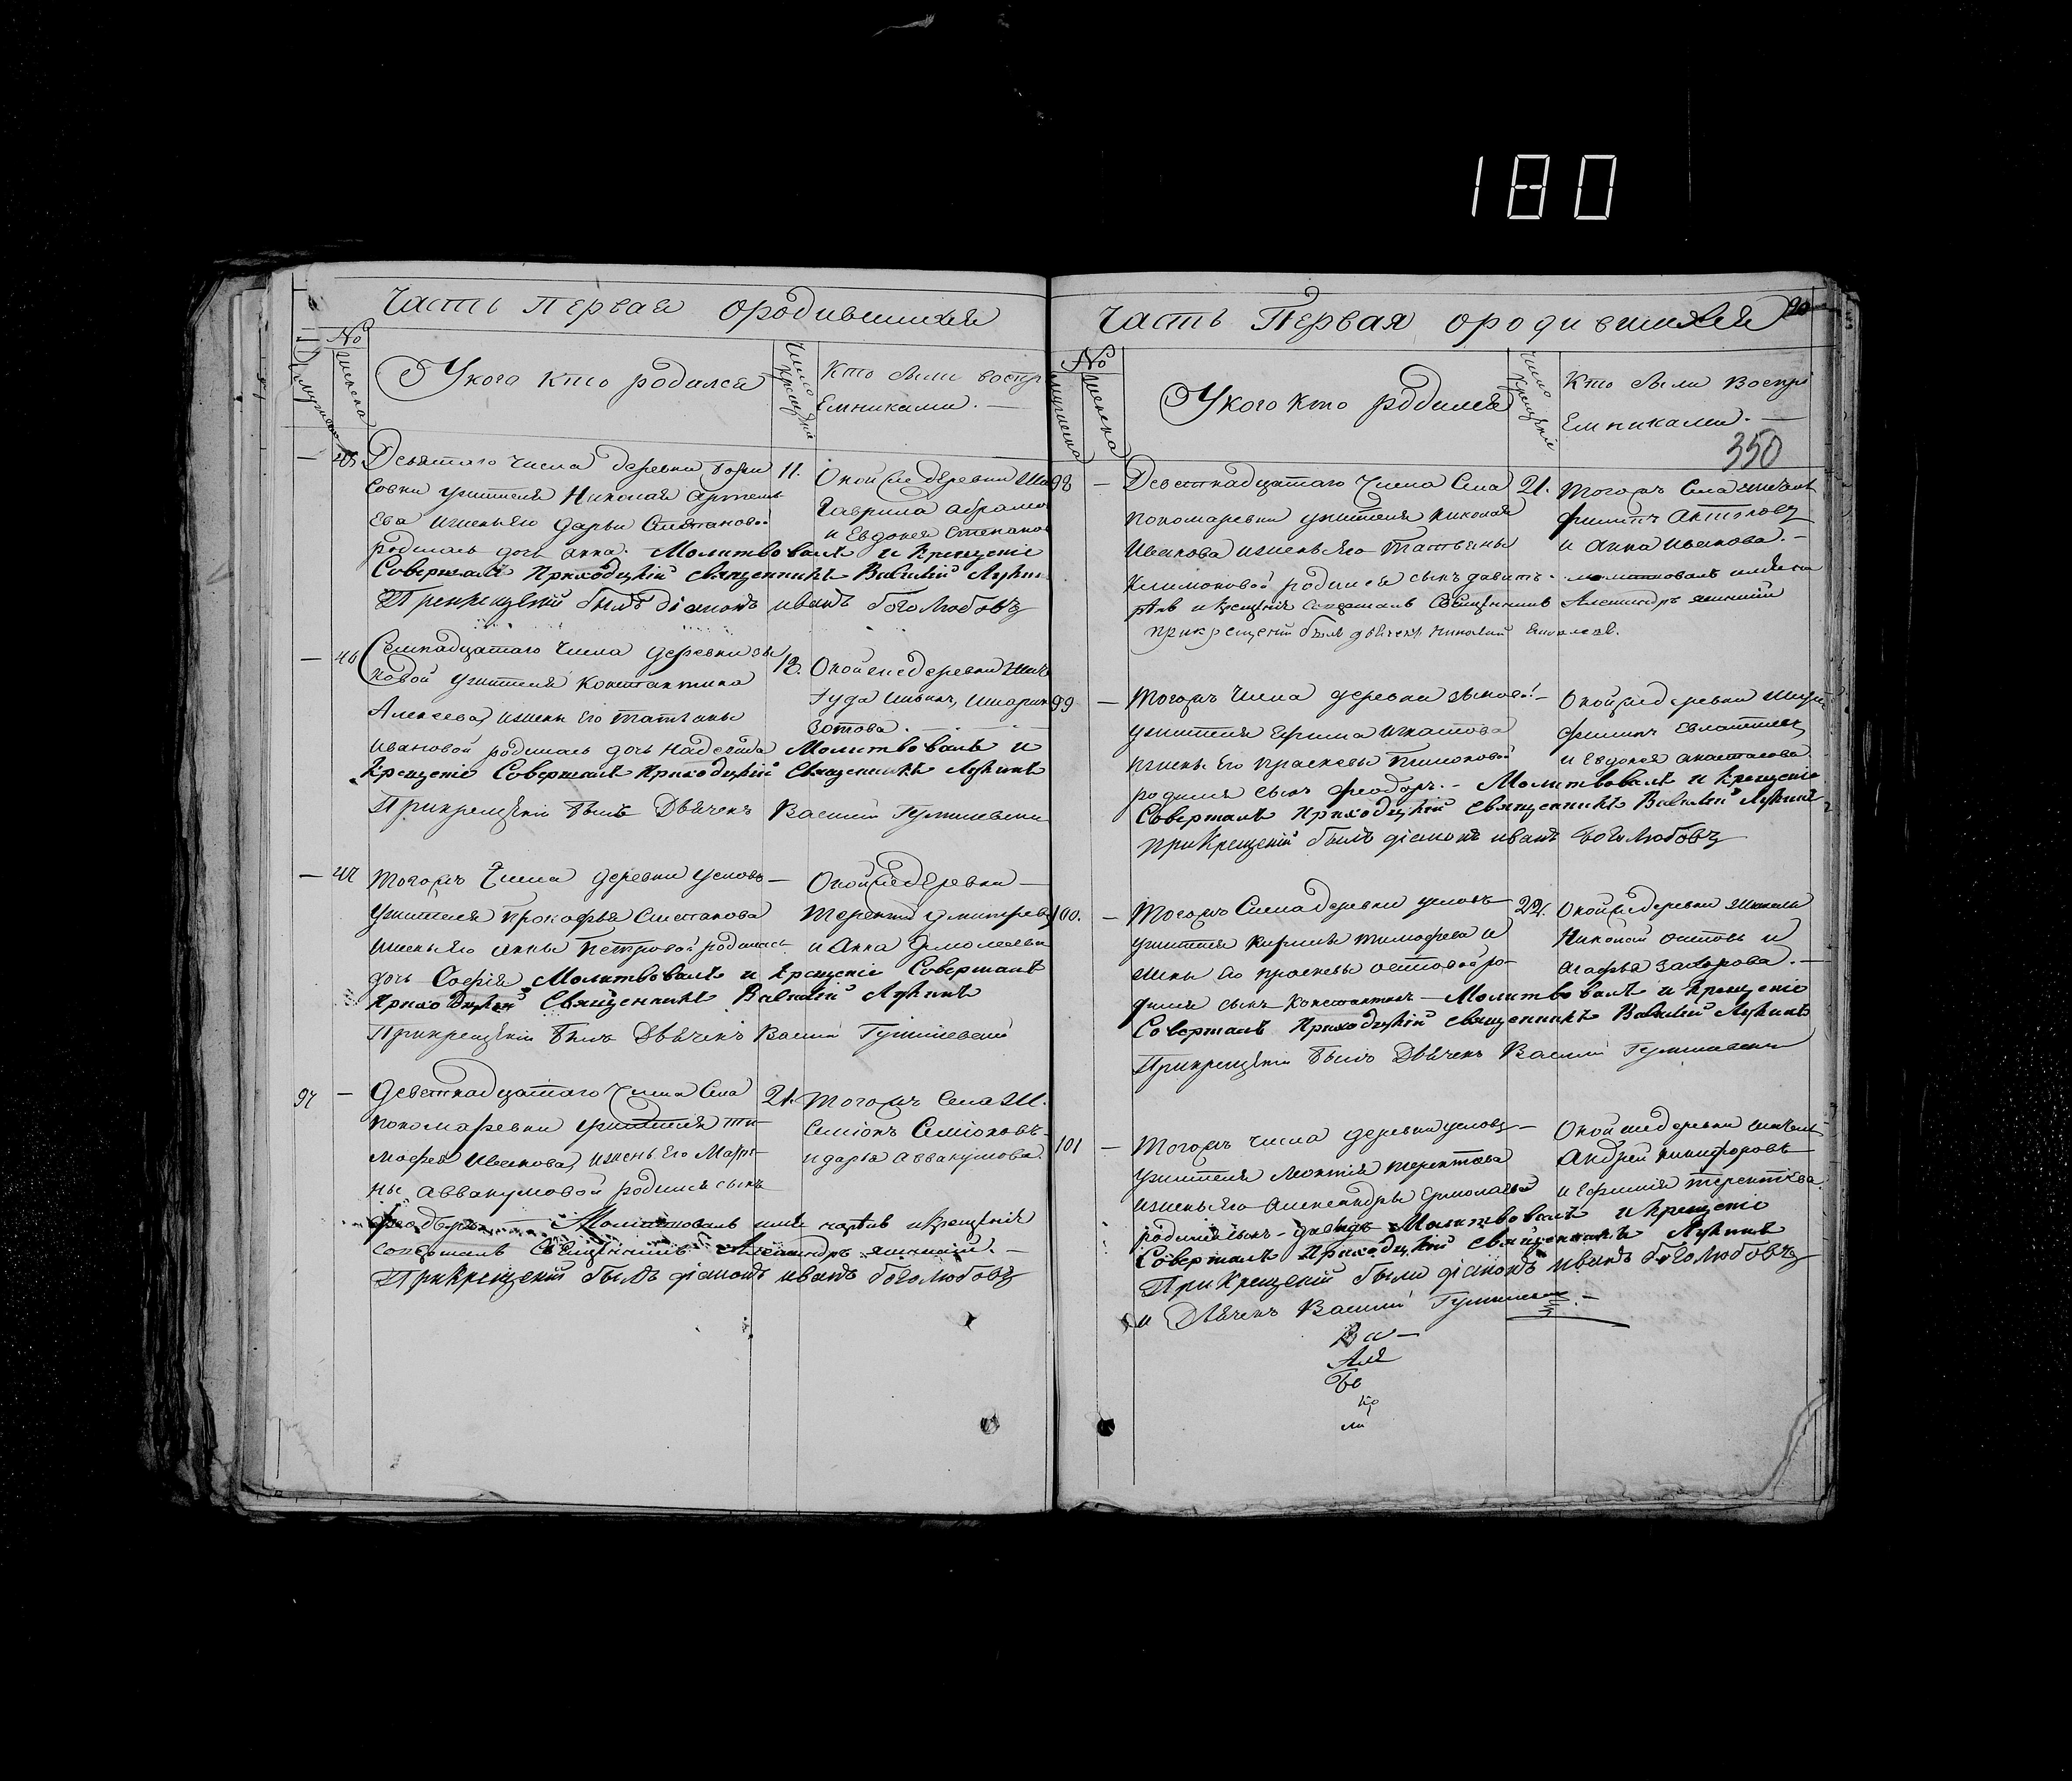 180
Часть Первая ородившихся
№
мужеска
женска
Укого кто родился
Число крещенiя
Кто были воспр
Емниками. —
— 45 Девятаго числа деревни
совки жителя Николая Артемь
Ева ижены Его Дарьи Степановой
родилась дочь Анна. Молитвовалъ и Крещенiе
Совершалъ Приходскiй священникъ Василiй Лукинъ
При крещенiй былъ дiаконъ иванъ боголюбовъ
11. Оной же деревни жи
Гаврила Абрамо
и Евдокея Степанов
— 46 Семнадцатаго числа деревни зы
ковой жителя Константина
Алексеева, ижены Его татьяны
Ивановой родилась дочь надежда Молитвовалъ и
Крещенiе Совершалъ Приходскiй Священникъ Лукинъ
Прикрещенiи былъ Дьячекъ Василiй Гумилевскiй
18. Оной же деревни жите
Зотова. —
— 47 Того жъ Числа деревни усковъ —
жителя Прокофья Степанова
ижены Его Анны Петровой родилась
дочь Софiя Молитвовалъ и крещенiе Совершалъ
Приходскiй Священникъ Василiй Лукинъ
Прикрещенiи былъ Дьячекъ Василiй Гумилевскiй
Оной же деревни —
Терентiй Дмитрев
и Анна Ермолаева
97 — Девятнадцатаго Числа Села
пономаревки жителя ти-
мофея Иванова, ижены Его Матре-
ны Аввакумовой родился сынъ
феодоръ — Молитвовалъ имя нарекъ икрещенiе
совершалъ Священникъ Александръ —
При Крещенiй былъ дiаконъ иванъ боголюбовъ
21. Того жъ Села Ж.
Семiонъ Семiоновъ
и дарья Аввакумова.
Часть Первая ородившихся 90
№
мужеска
женска
Укого кто родился
Число Крещенiе
Кто были Воспрi
Емниками. —
350
98 — Девятнадцатаго Числа Села
пономаревки жителя Николая
Иванова ижены Его Татьяны
Климоновой родился сынъ давитъ. молитвовалъ имя на
рекъ и крещенiе совершалъ Священникъ Александръ
при крещенiи былъ дьячекъ Николай
21. Того жъ Села житель
филипъ Антоновъ
и Анна Иванова. —
99 — Того жъ Числа деревни зыковой —
жителя Ефима Игнатова
ижены Его Прасковьи Тимоновой
родился сынъ феодоръ. — Молитвовалъ и Крещенiе
Совершалъ Приходскiй священникъ Василiй Лукинъ
при Крещенiй былъ дiаконъ иванъ боголюбовъ
Оной же деревни жите
филипъ Евлантьевъ
и Евдокея Анастасова
100. — Того жъ Числа деревни усковъ
жителя Кирилы Тимофеева и
жены Его Прасковьи Остовой ро-
дился сынъ Константинъ — Молитвовалъ и Крещенiе
Совершалъ Приходскiй священникъ Василiй Лукинъ
Прикрещенiи былъ Дьячекъ Василiй Гумилевскiй
22. Оной же деревни жители
Николай Остовъ и
Агафья Захарова. —
101 — Того жъ числа деревни усковъ —
жителя Леонтiя терентьева
ижены Его Александры Ермолаевой
родился сынъ — давидъ Молитвовалъ и Крещенiе
Совершалъ Приходскiй Священникъ Лукинъ
При Крещенiй были дiаконъ иванъ боголюбовъ
и Дьячекъ Василiй Гумилевскiй. —
Оной же деревни житель
Андрей Никифоровъ
и Ефимiя терентiева.
Ва —
Аля
Бе
ко
ли